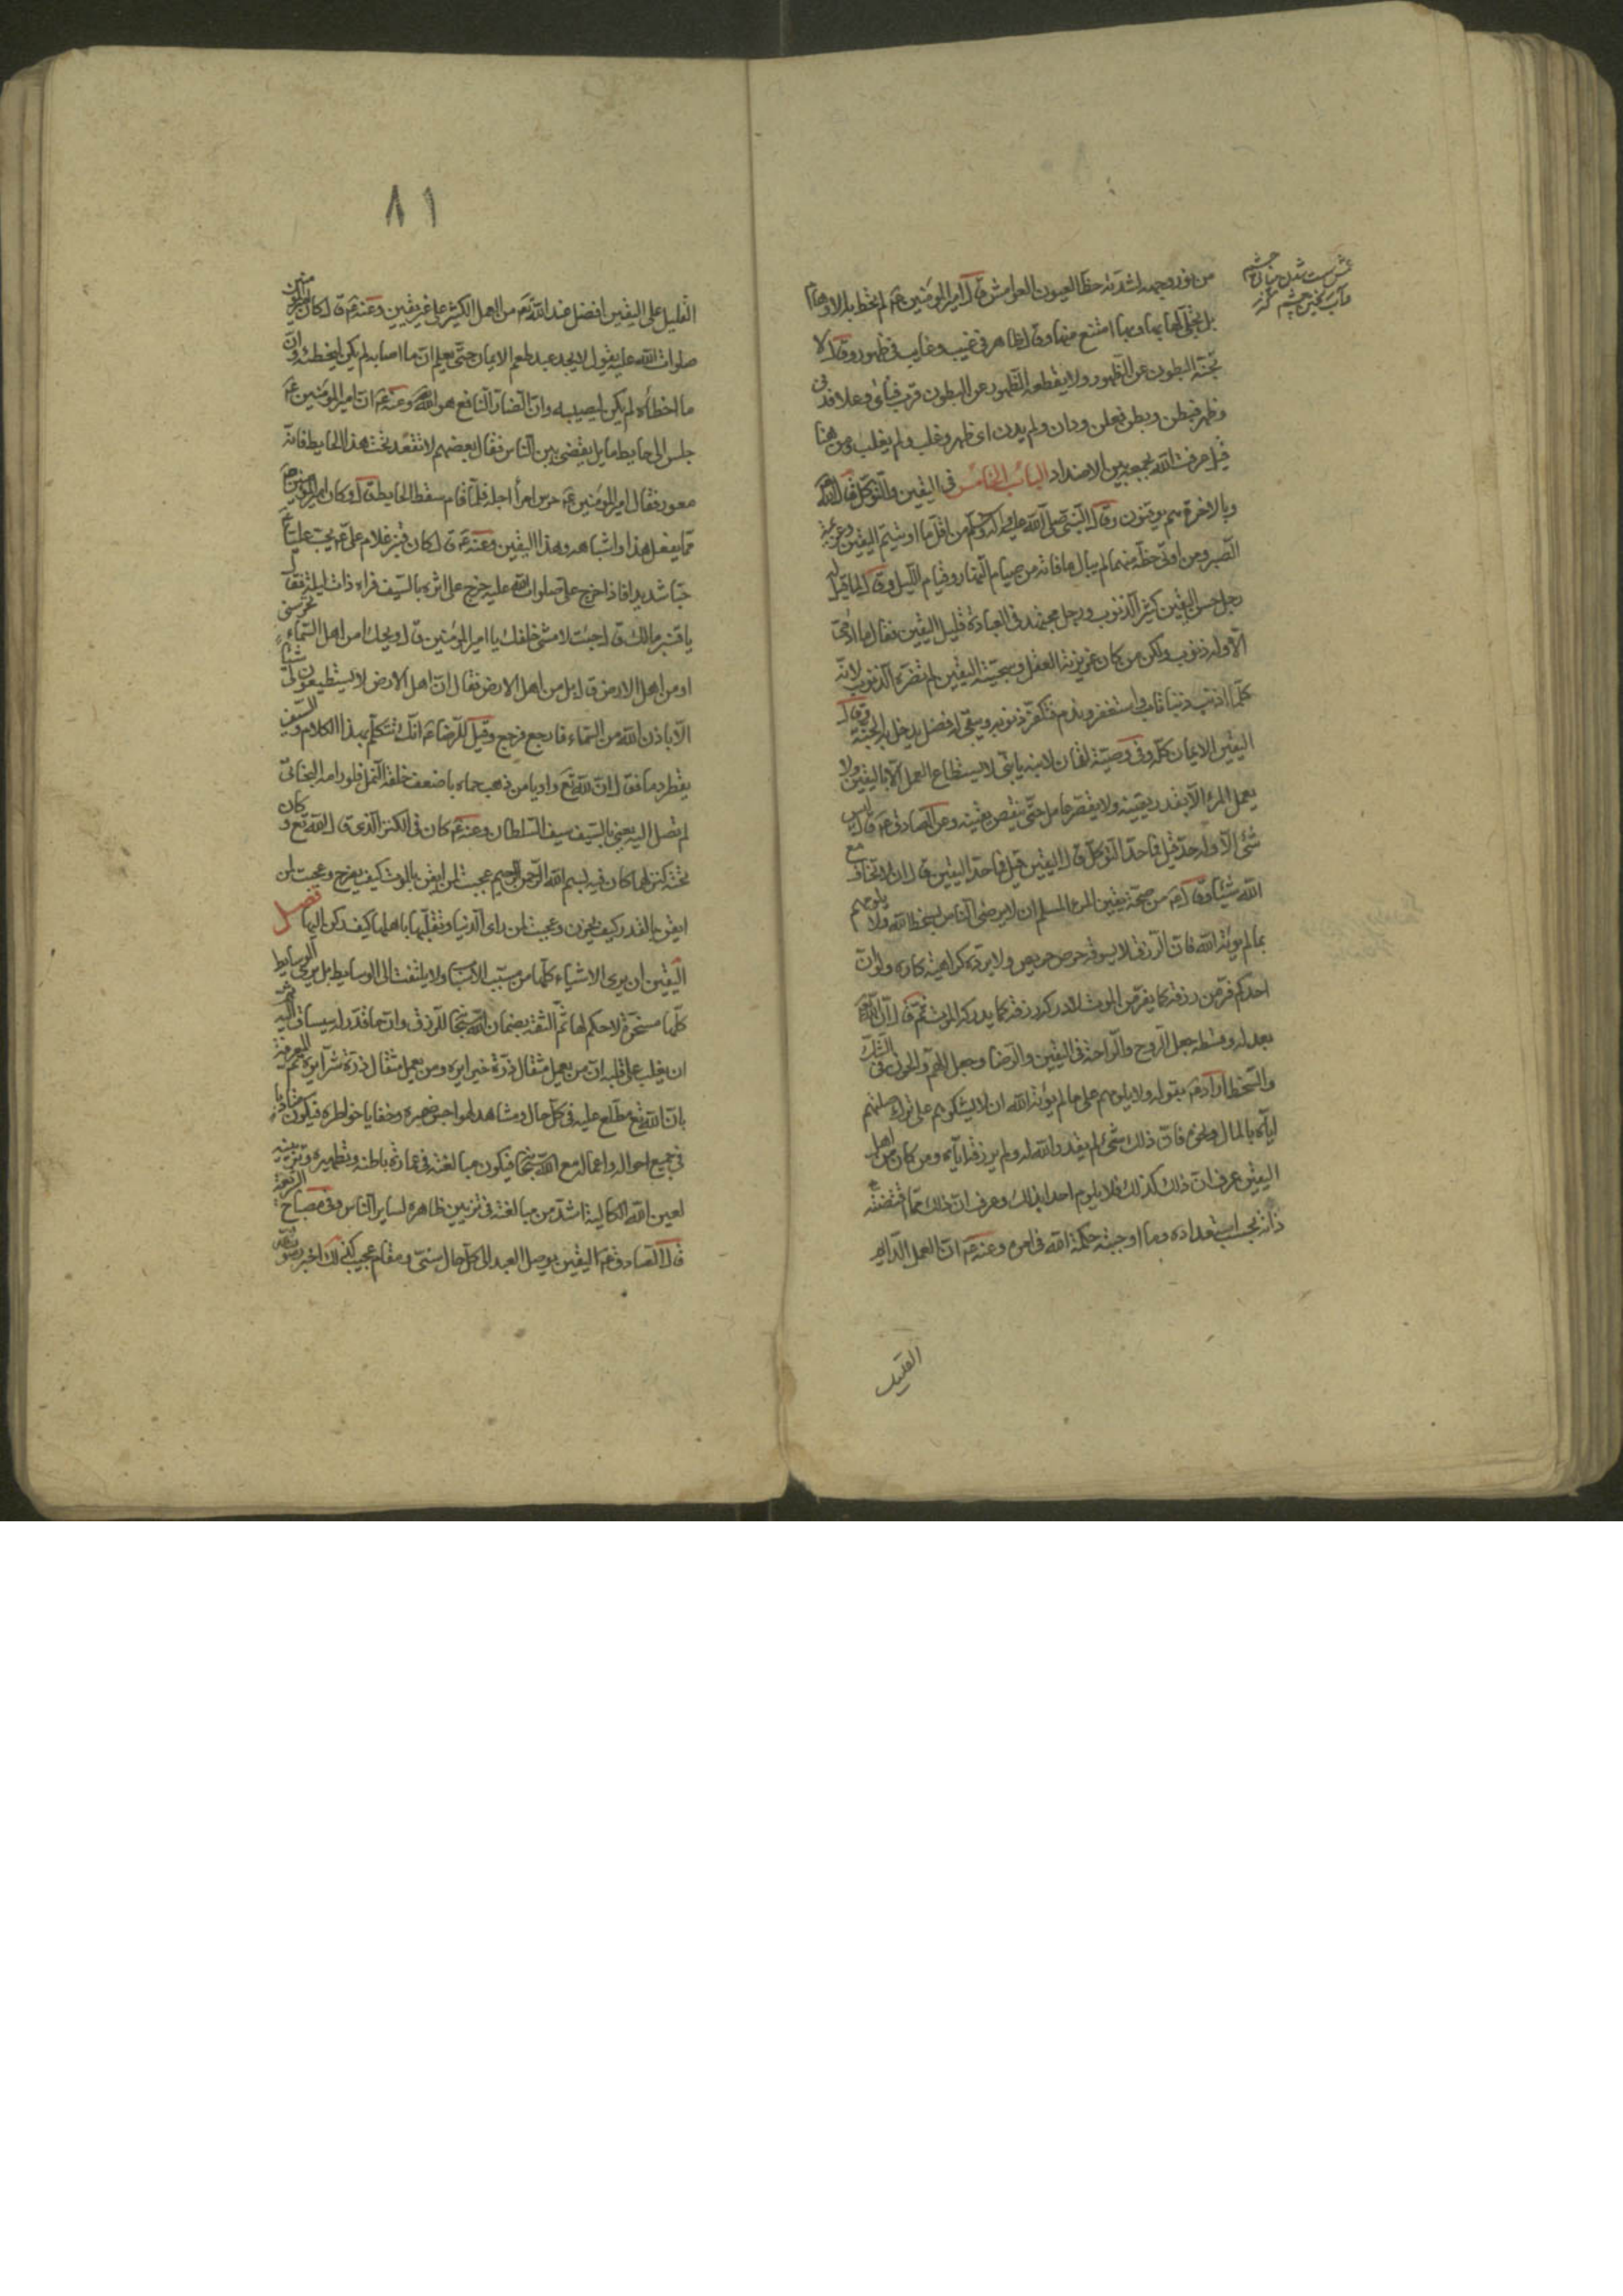 من نور وجهه اشدته حظا العيون العوامش قال امير المؤمنين ع لم تحط به الاوهام
بل تجلى لها بها وبها امتنع منها وقال ظاهر في غيب وغايب في ظهور وقال لا
تجنه البطون عن الظهور ولا يقطعه الظهور عن البطون قرب فنأى وعلا فدنى
وظهر فبطن وبطن فعلن ودان ولم يدن اى ظهر وغلب ولم يغلب ومن هنا
قيل عرفت الله بجمعه بين الاضداد الباب الخامس في اليقين والتوكل قال الله
وبالاخرة هم يوقنون وقال النبى صلى الله عليه وآله وسلم من اقل ما اوتيتم اليقين وعزيمة
الصبر ومن اوتى حظه منهما لم يبال ما فاته من صيام النهار وقيام الليل وقال لما قيل له
رجل حسن اليقين كثير الذنوب ورجل مجتهد في العبادة قليل اليقين فقال ما آدمى
الا وله ذنوب ولكن من كان غريزته العقل وسجيته اليقين لم تضره الذنوب لانه
كلما اذنب ذنبا تاب واستغفر وندم فتكفر ذنوبه ويبقى له فضل يدخل به الجنة وقال
اليقين الايمان كله وفي وصية لقمان لابنه يا بنى لا يستطاع العمل الا باليقين ولا
يعمل المرء الا بقدر يقينه ولا يقصر عامل حتى ينقص يقينه وعن الصادق ع قال ليس
شئ الا وله حد قيل فما حد التوكل قال اليقين قيل فما حد اليقين قال ان لا تخاف مع
الله شيئا وقال ع من صحة يقين المرء المسلم ان لا يرضى الناس بسخط الله ولا يلومهم
بما لم يؤته الله فان الرزق لا يسوقه حرص حريص ولا يرده كراهية كاره ولو ان
احدكم فر من رزقه كما يفر من الموت لادركه رزقه كما يدركه الموت ثم قال ان الله
بعدله وقسطه جعل الروح والراحة في اليقين والرضا وجعل الهم والحزن في الشك
والسخط اراد ع بقوله ولا يلومهم على ما لم يؤته الله ان لا يشكوهم على ترك صلتهم
اياه بالمال ونحوه فان ذلك شئ لم يقدره الله له ولم يرزقه اياه ومن كان من اهل
اليقين عرف ان ذلك كذلك فلا يلوم احدا بذلك وعرف ان ذلك مما اقتضته
ذاته بحسب استعداده وما اوجبته حكمة الله في امره وعنه ع ان العمل الدائم
القليل
٨١
القليل على اليقين افضل عند الله تع من العمل الكثير على غير يقين وعنه ع قال كان امير المؤمنين
صلوات الله عليه يقول لا يجد عبد طعم الايمان حتى يعلم ان ما اصابه لم يكن ليخطئه وان
ما اخطأه لم يكن ليصيبه وان الضار النافع هو الله وعنه ع ان امير المؤمنين ع
جلس الى حايط مايل يقضى بين الناس فقال بعضهم لا تقعد تحت هذا الحايط فانه
معور فقال امير المؤمنين ع حرس امرأ اجله فلما قام سقط الحايط قال وكان امير المؤمنين ع
مما يفعل هذا واشباهه وهذا اليقين وعنه ع قال كان قنبر غلام على ع يحب عليا
حبا شديدا فاذا خرج على صلوات الله عليه خرج على اثره بالسيف فراه ذات ليلة فقال
يا قنبر مالك قال جئت لامشى خلفك يا امير المؤمنين قال ويحك امن اهل السماء تحرسنى
او من اهل الارض قال بل من اهل الارض فقال ان اهل الارض لا يستطيعون لى شيئا
الا باذن الله من السماء فارجع فرجع وقيل للرضا ع انك تتكلم بهذا الكلام والسيف
يقطر دما فقال ان لله تع واديا من ذهب حماه باضعف خلقه النمل فلو رامه البخاتى
لم تصل اليه يعنى بالسيف سيف السلطان وعنه ع كان في الكنز الذى قال الله تع وكان
تحته كنز لهما كان فيه بسم الله الرحمن الرحيم عجبت لمن ايقن بالموت كيف يفرح وعجبت لمن
ايقن بالقدر كيف يحزن وعجبت لمن راى الدنيا وتقلبها باهلها كيف يركن اليها فصل
اليقين ان يرى الاشياء كلها من مسبب الاسباب ولا يلتفت الى الوسايط بل يرى الوسايط
كلها مسخرة لا حكم لها ثم الثقة بضمان الله سبحانه للرزق وان ما قدر له سيساق اليه ثم
ان يغلب على قلبه ان من يعمل مثقال ذرة خيرا يره ومن يعمل مثقال ذرة شرا يره ثم المعرفة
بان الله تع مطلع عليه في كل حال ومشاهد لهواجس ضميره وخفايا خواطره فيكون متادبا
في جميع احواله واعماله مع الله سبحانه فيكون مبالغته في عمارة باطنه وتطهيره وتزيينه
لعين الله الكالية اشد من مبالغته في تزيين ظاهره لساير الناس وفي مصباح الشريعة
قال الصادق ع اليقين يوصل العبد الى كل حال سنى ومقام عجيب كذلك اخبر رسول الله